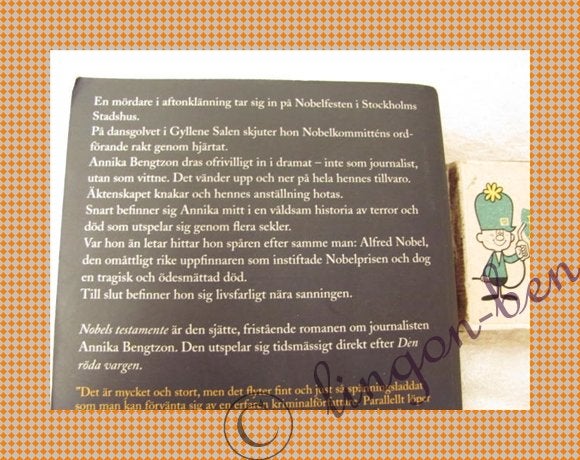 En mördare i aftonklänning tar sig in på Nobelfesten i Stockholms
Stadshus.
På dansgolvet i Gyllene Salen skjuter hon Nobelkommitténs ord-
förande rakt genom hjärtat.
Annika Bengtzon dras ofrivilligt in i dramat – inte som journalist,
utan som vittne. Det vänder upp och ner på hela hennes tillvaro.
Äktenskapet knakar och hennes anställning hotas.
Snart befinner sig Annika mitt i en våldsam historia av terror och
död som utspelar sig genom flera sekler.
Var hon än letar hittar hon spåren efter samme man: Alfred Nobel,
den omåttligt rike uppfinnaren som instiftade Nobelprisen och dog
en tragisk och ödesmättad död.
Till slut befinner hon sig livsfarligt nära sanningen.
Nobels testamente är den sjätte, fristående romanen om journalisten
Annika Bengtzon. Den utspelar sig tidsmässigt direkt efter Den
röda vargen.
"Det är mycket och stort, men det flyter fint och just så spänningsladdat
som man kan förvänta sig av en erfaren kriminalförfattare. Parallellt löper
© lingon-ben